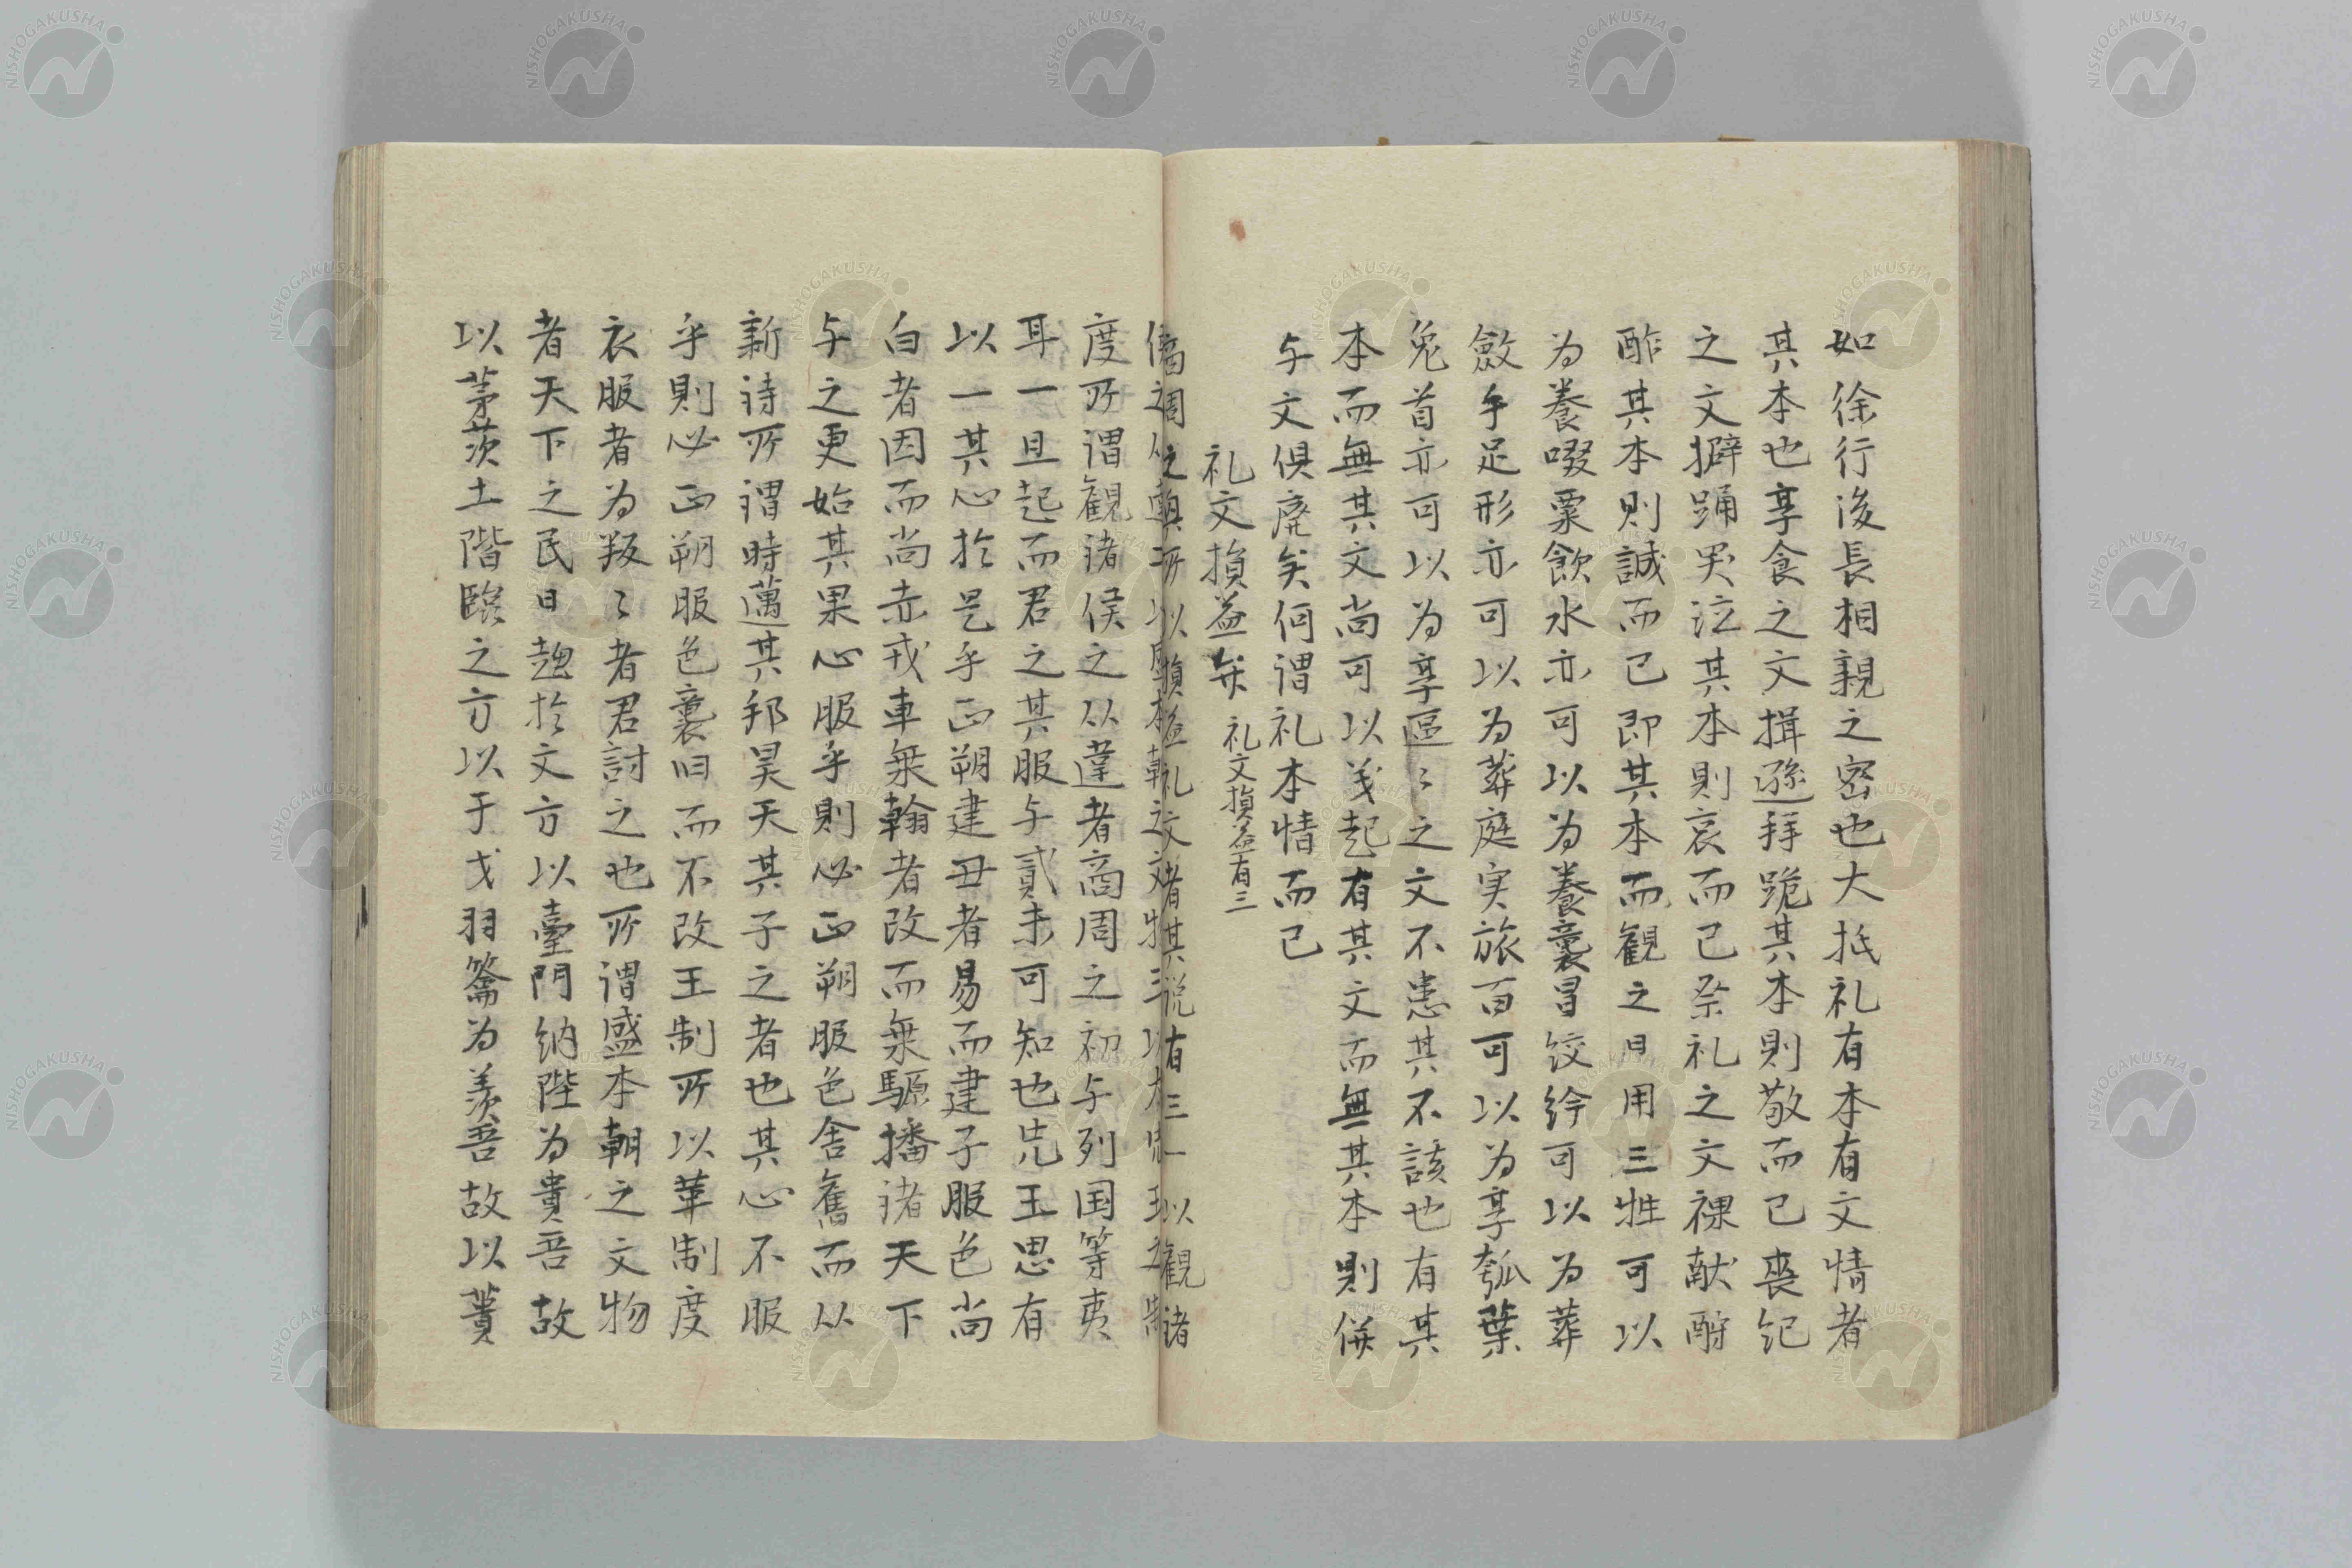 如徐行後長相親之密也大抵礼有本有文情者
其本也享食之文揖遜拜跪其本則敬而已喪紀
之文擗踊哭泣其本則哀而已祭礼之文祼献酬
酢其本則誠而已即其本而観之日用三牲可以
为養啜粟飲水亦可以为養嚢冒絞紟可以为葬
斂手足形亦可以为葬庭実旅百可以为享瓠葉
兔首亦可以为享區〻之文不患其不該也有其
本而無其文尚可以义起有其文而無其本則併
与文俱廃矣何谓礼本情而已
礼文損益弁 礼文損益有三
度所谓観诸侯之从違者商周之初与列国等夷
耳一旦起而君之其服与貳未可知也先王思有
以一其心於是乎正朔建丑者易而建子服色尚
白者因而尚赤戎車乗翰者改而乗騵播诸天下
与之更始其果心服乎則必正朔服色舍舊而从
新诗所谓時邁其邦昊天其子之者也其心不服
乎則必正朔服色襲旧而不改王制所以革制度
衣服者为叛〻者君討之也所谓盛本朝之文物
者天下之民日趨於文方以臺門納陛为貴吾故
以茅茨土階臨之方以于戈羽籥为羡吾故以蕢
NISHOGAKUSHA